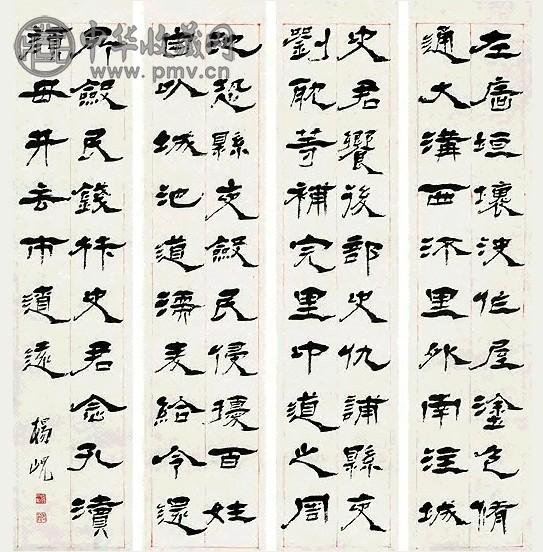 左廧垣壞決作屋塗色脩
通大溝西流里外南注城
史君饗後部史仇誧縣吏
劉耽等補完里中道之周
池恐縣吏斂民侵擾百姓
自以城池道濡麥給令還
所斂民錢材史君念孔瀆
顏母井去市遼遠
楊峴
中华收藏网
www.pmv.cn